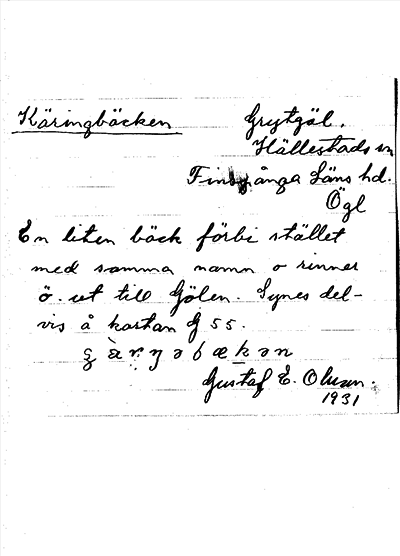 Käringbäcken
Grytgöl.
Hällestads sn
Finspånga Läns hd.
Ögl
En liten bäck förbi stället
med samma namn o rinner
ö. ut till Gölen. Synes del-
vis å kartan G 55.
Gustaf E. Olsson.
1931